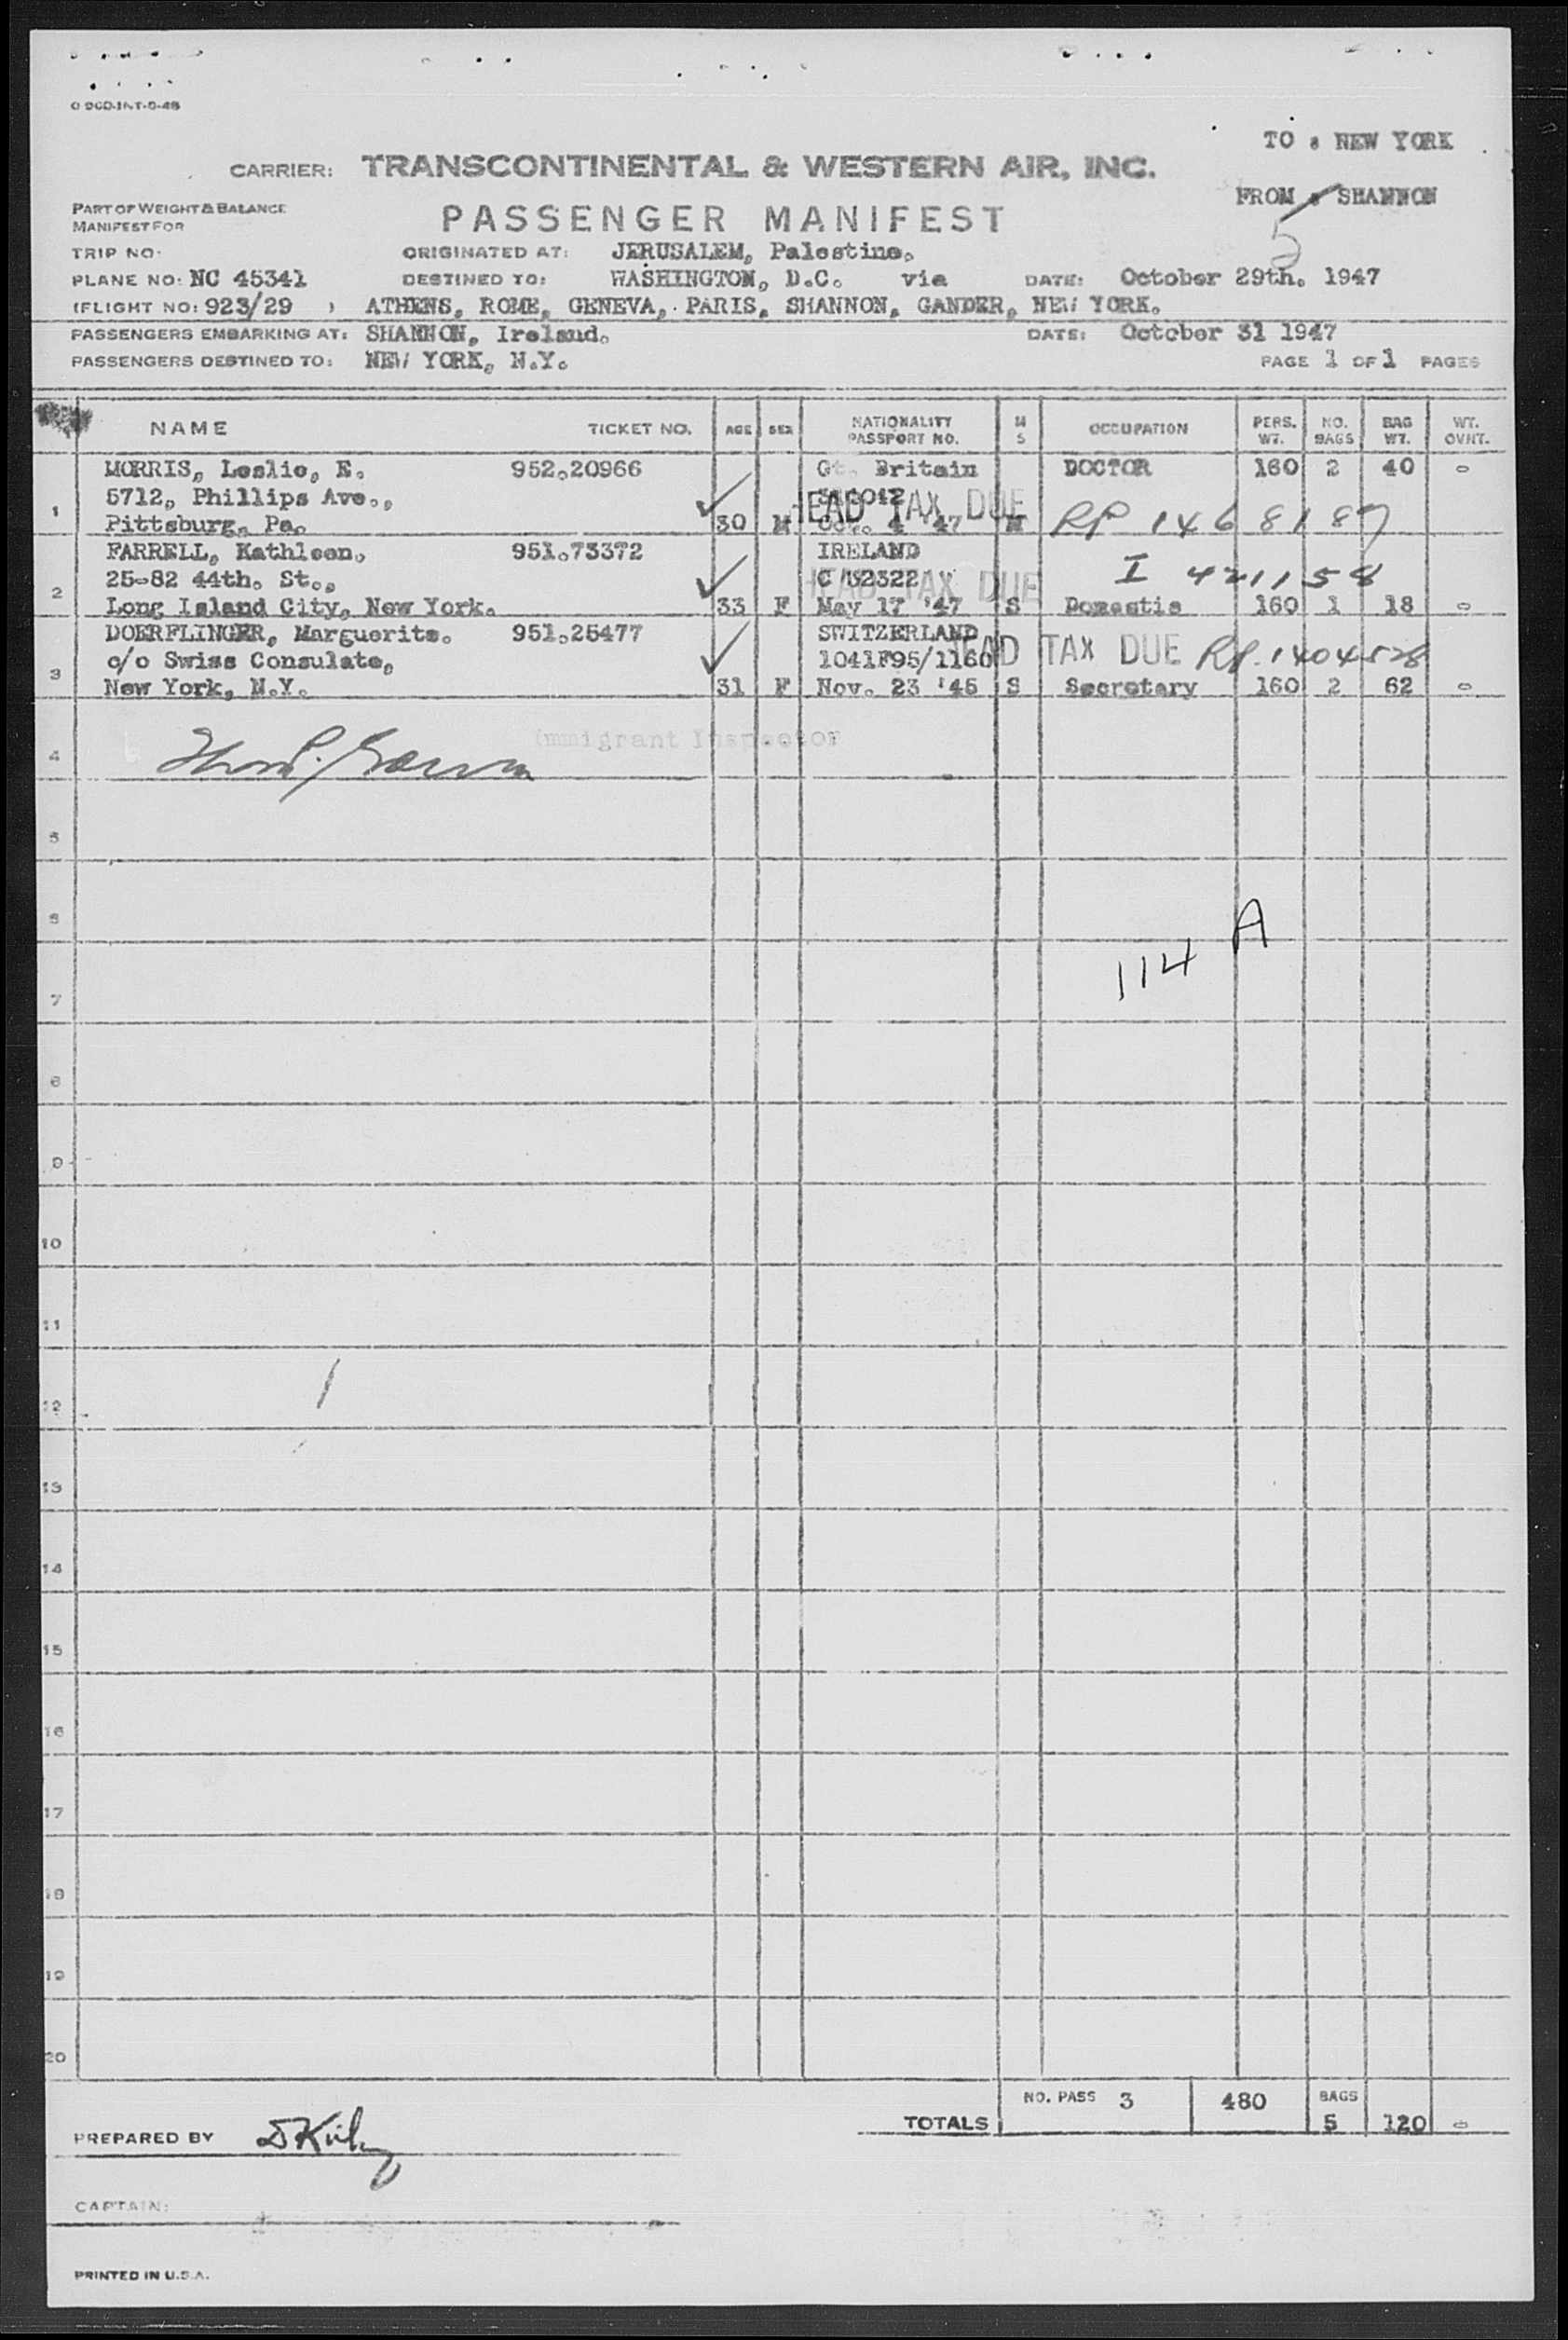 TO : NEW YORK
CARRIER: TRANSCONTINENTAL & WESTERN AIR, INC.
FROM : SHANNON
5
PART OF WEIGHT & BALANCE
MANIFEST FOR
PASSENGER MANIFEST
TRIP NO.
ORIGINATED AT: JERUSALEM, Palestine.
PLANE NO: NC 45341
DESTINED TO: WASHINGTON, D.C. via
DATE: October 29th. 1947
(FLIGHT NO: 923/29 ) ATHENS, ROME, GENEVA, PARIS, SHANNON, GANDER, NEW YORK.
PASSENGERS EMBARKING AT: SHANNON, Ireland.
DATE: October 31 1947
PASSENGERS DESTINED TO: NEW YORK, N.Y.
PAGE 1 OF 1 PAGES
NAME TICKET NO. AGE SEX NATIONALITY PASSPORT NO. M S OCCUPATION PERS. WT. NO. BAGS BAG WT. WT. OVHT.
MORRIS, Leslie, E. 952.20966 Gt. Britain DOCTOR 160 2 40 0
5712, Phillips Ave.,
HEAD TAX DUE
1 Pittsburg, Pa. 30 M Oct. 4 '47 M RP 1468187
FARRELL, Kathleen, 951.73372 IRELAND
25-82 44th. St., HEAD TAX DUE I 421158
2 Long Island City, New York. 33 F May 17 '47 S Domestic 160 1 18 0
DOERFLINGER, Marguerite. 951.25477 SWITZERLAND
c/o Swiss Consulate, 1041F95/1160 HEAD TAX DUE RP. 1404528
3 New York, N.Y. 31 F Nov. 23 '45 S Secretary 160 2 62 0
Immigrant Inspector
4
5
6
A
114
7
8
9
10
11
12
13
14
15
16
17
18
19
20
TOTALS NO. PASS 3 480 BAGS 5 120 0
PREPARED BY
CAPTAIN:
PRINTED IN U.S.A.